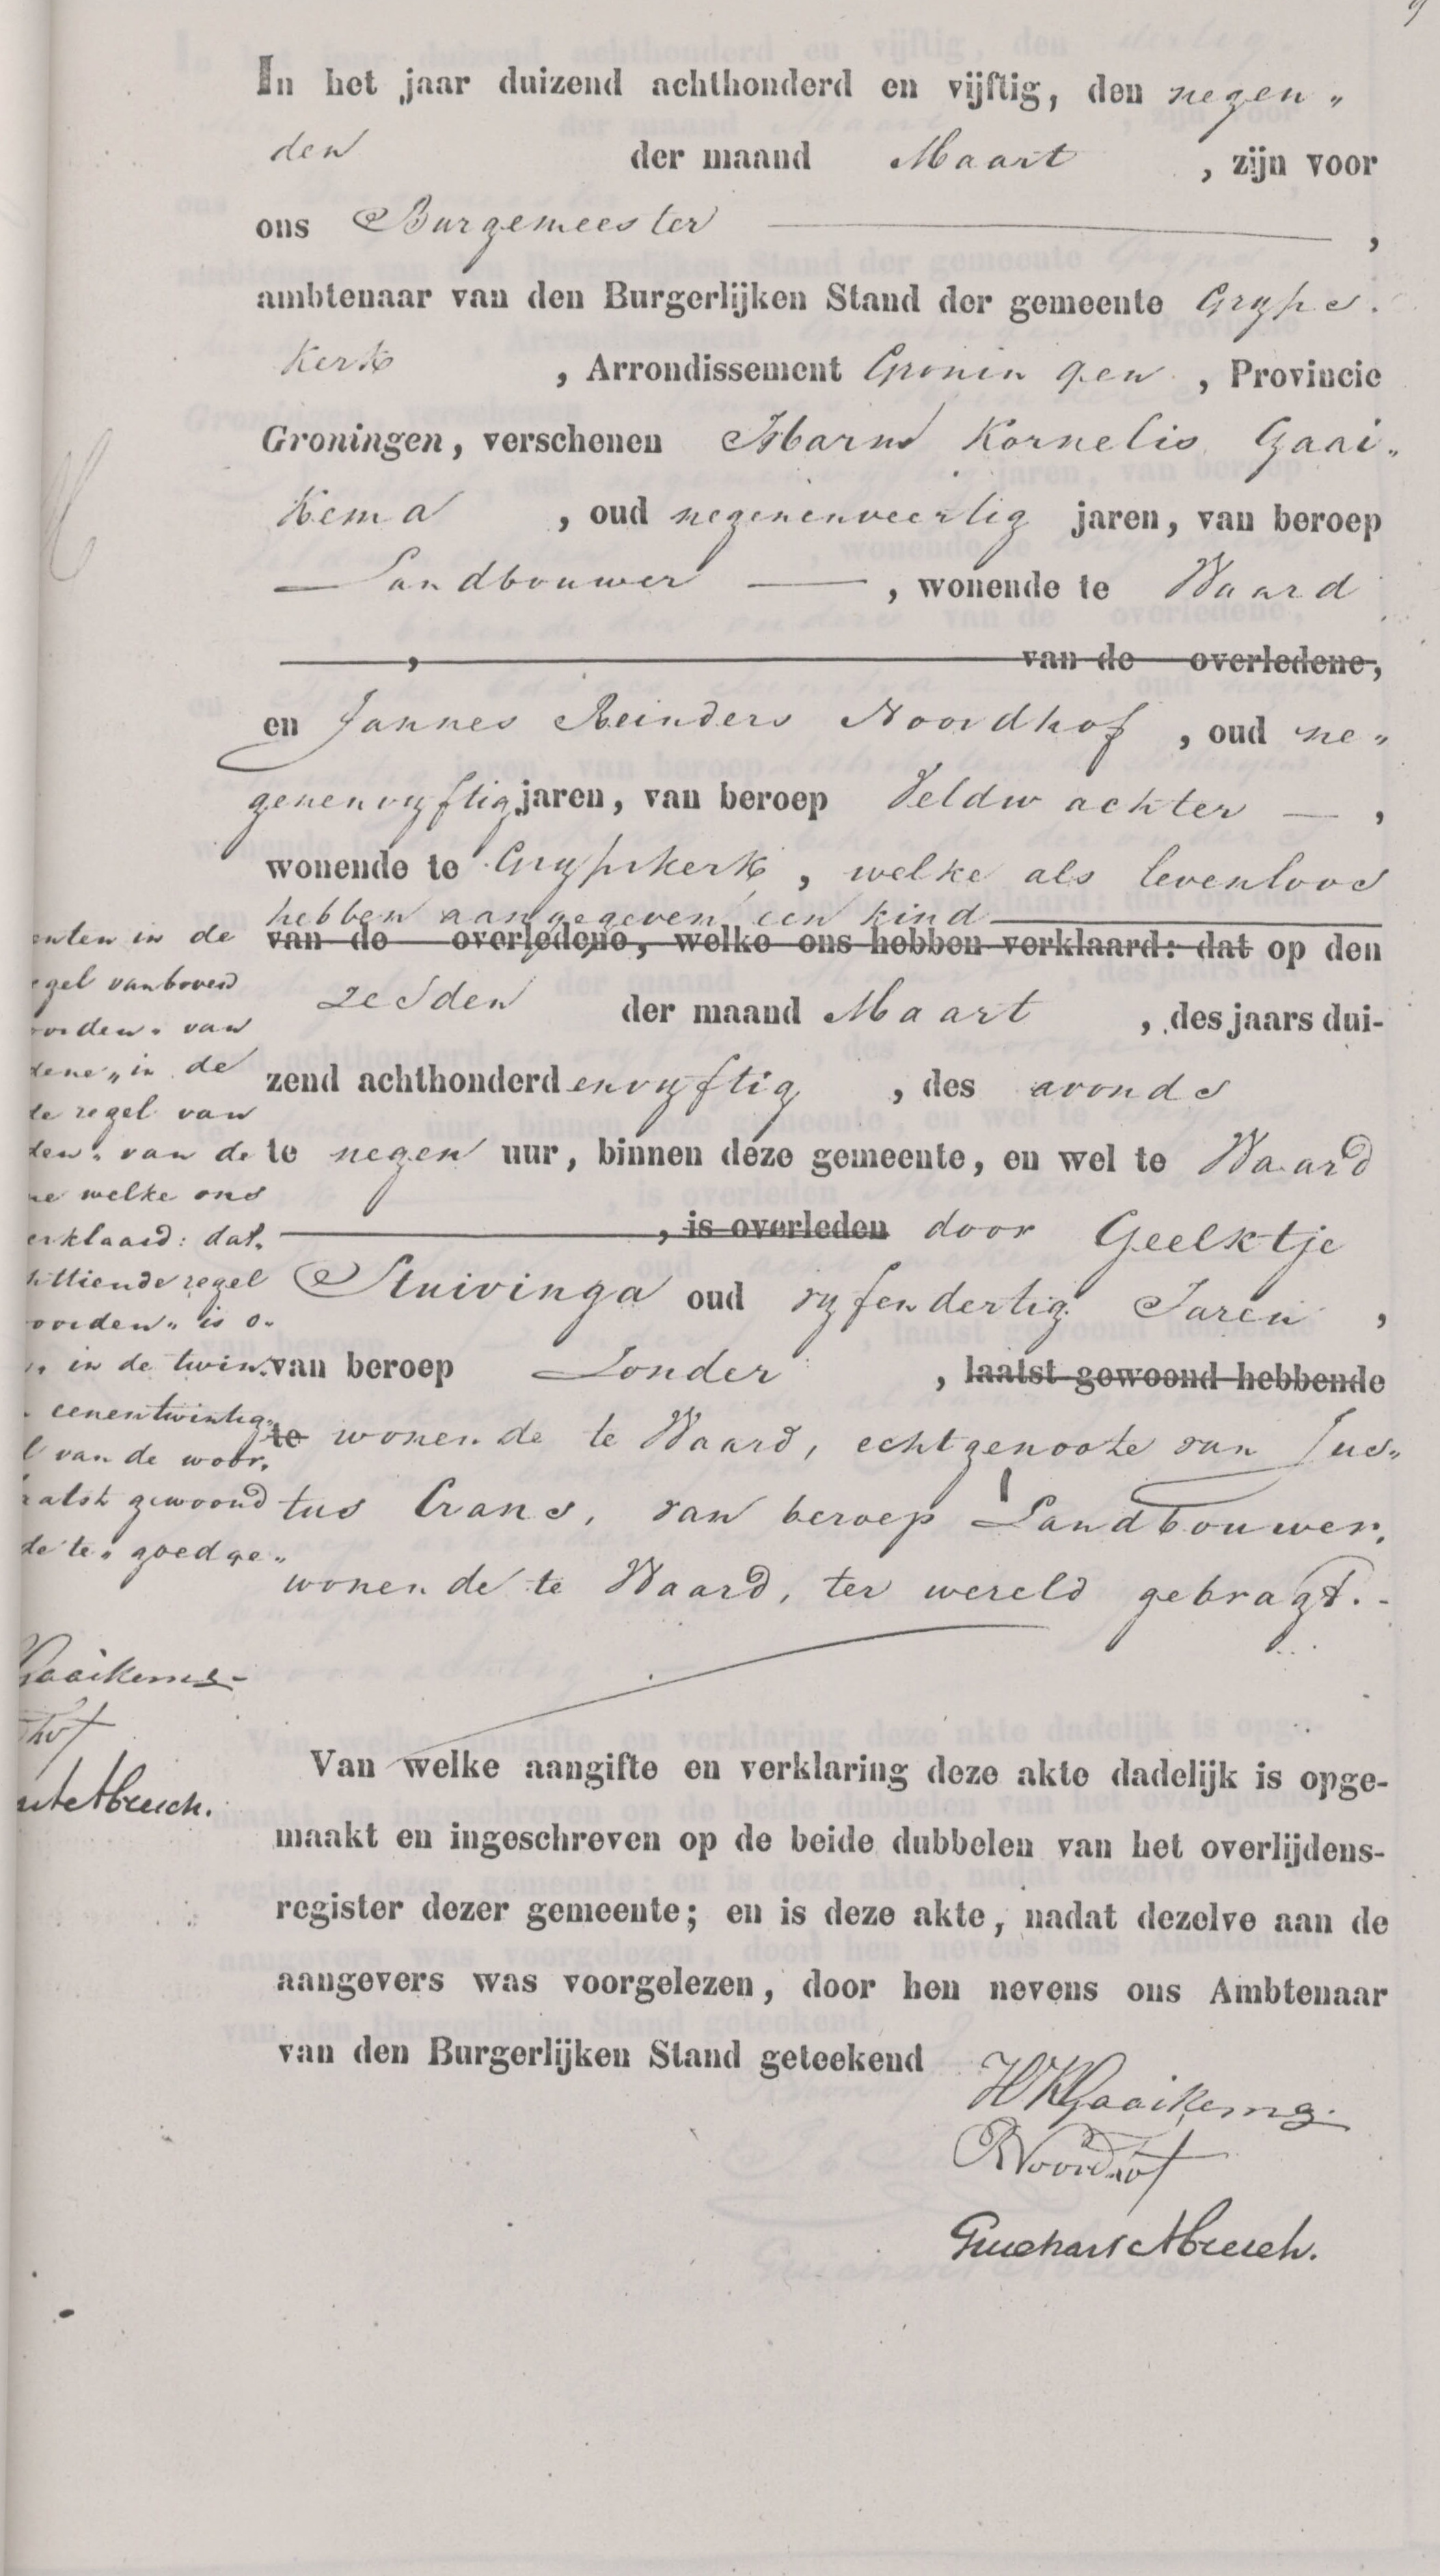 In het jaar duizend achthonderd en vijftig, den negen„
den der maand Maart , zijn voor
ons Burgemeester ,
ambtenaar van den Burgerlijken Stand der gemeente Gryps.
kerk , Arrondissement Groningen , Provincie
Groningen, verschenen Harm Kornelis Gaai„
kema , oud negenenveertig jaren, van beroep
Landbouwer , wonende te Waard
, van de overledene,
en Jannes Reinders Noordhof , oud ne„
genenvyftig jaren, van beroep Veldwachter ,
wonende te Grypskerk , welke als levenloos
hebben aangegeven een kind
van de overledene, welke ons hebben verklaard: dat op den
zesden der maand Maart , des jaars dui-
zend achthonderd en vyftig , des avonds
te negen uur, binnen deze gemeente, en wel te Waard
, is overleden door Geelktje
Stuivinga oud vyfendertig Jaren ,
van beroep Zonder , laatst gewoond hebbende
te wonende te Waard, echtgenoote van Jus„
tus Crans, van beroep Landbouwer,
wonende te Waard, ter wereld gebragt.-
enten in de
egel van boven
orden„ van
dene„ in de
de regel van
den„ van de
ne welke ons
erklaard: dat„
httiende regel
oorden„ is o„
in de twin„
eenentwintig„
l van de woor„
aatst gewoond
de te„ goedge„
Gaaikema
hof
Van welke aangifte en verklaring deze akte dadelijk is opge-
maakt en ingeschreven op de beide dubbelen van het overlijdens-
register dezer gemeente; en is deze akte, nadat dezelve aan de
aangevers was voorgelezen, door hen nevens ons Ambtenaar
van den Burgerlijken Stand geteekend
HKGaaikema.
RNoordhof